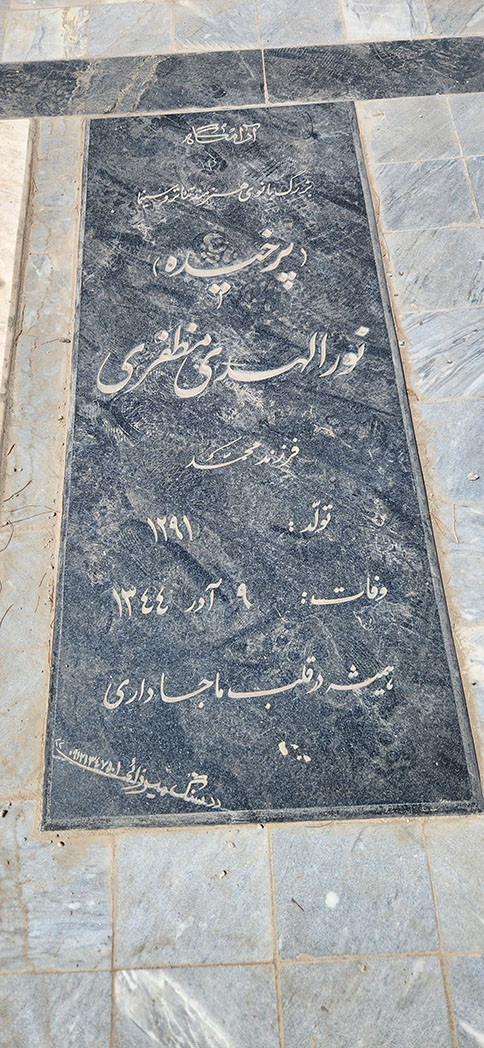 آرامگاه
بزرگ بانوی هنرمند تئاتر و سینما
(پرخیده)
نورالهدی مظفری
فرزند محمد
تولّد: ۱۲۹۱
وفات: ۹ آذر ۱۳۴۴
همیشه در قلب ما جا داری
سنگ میرزائی